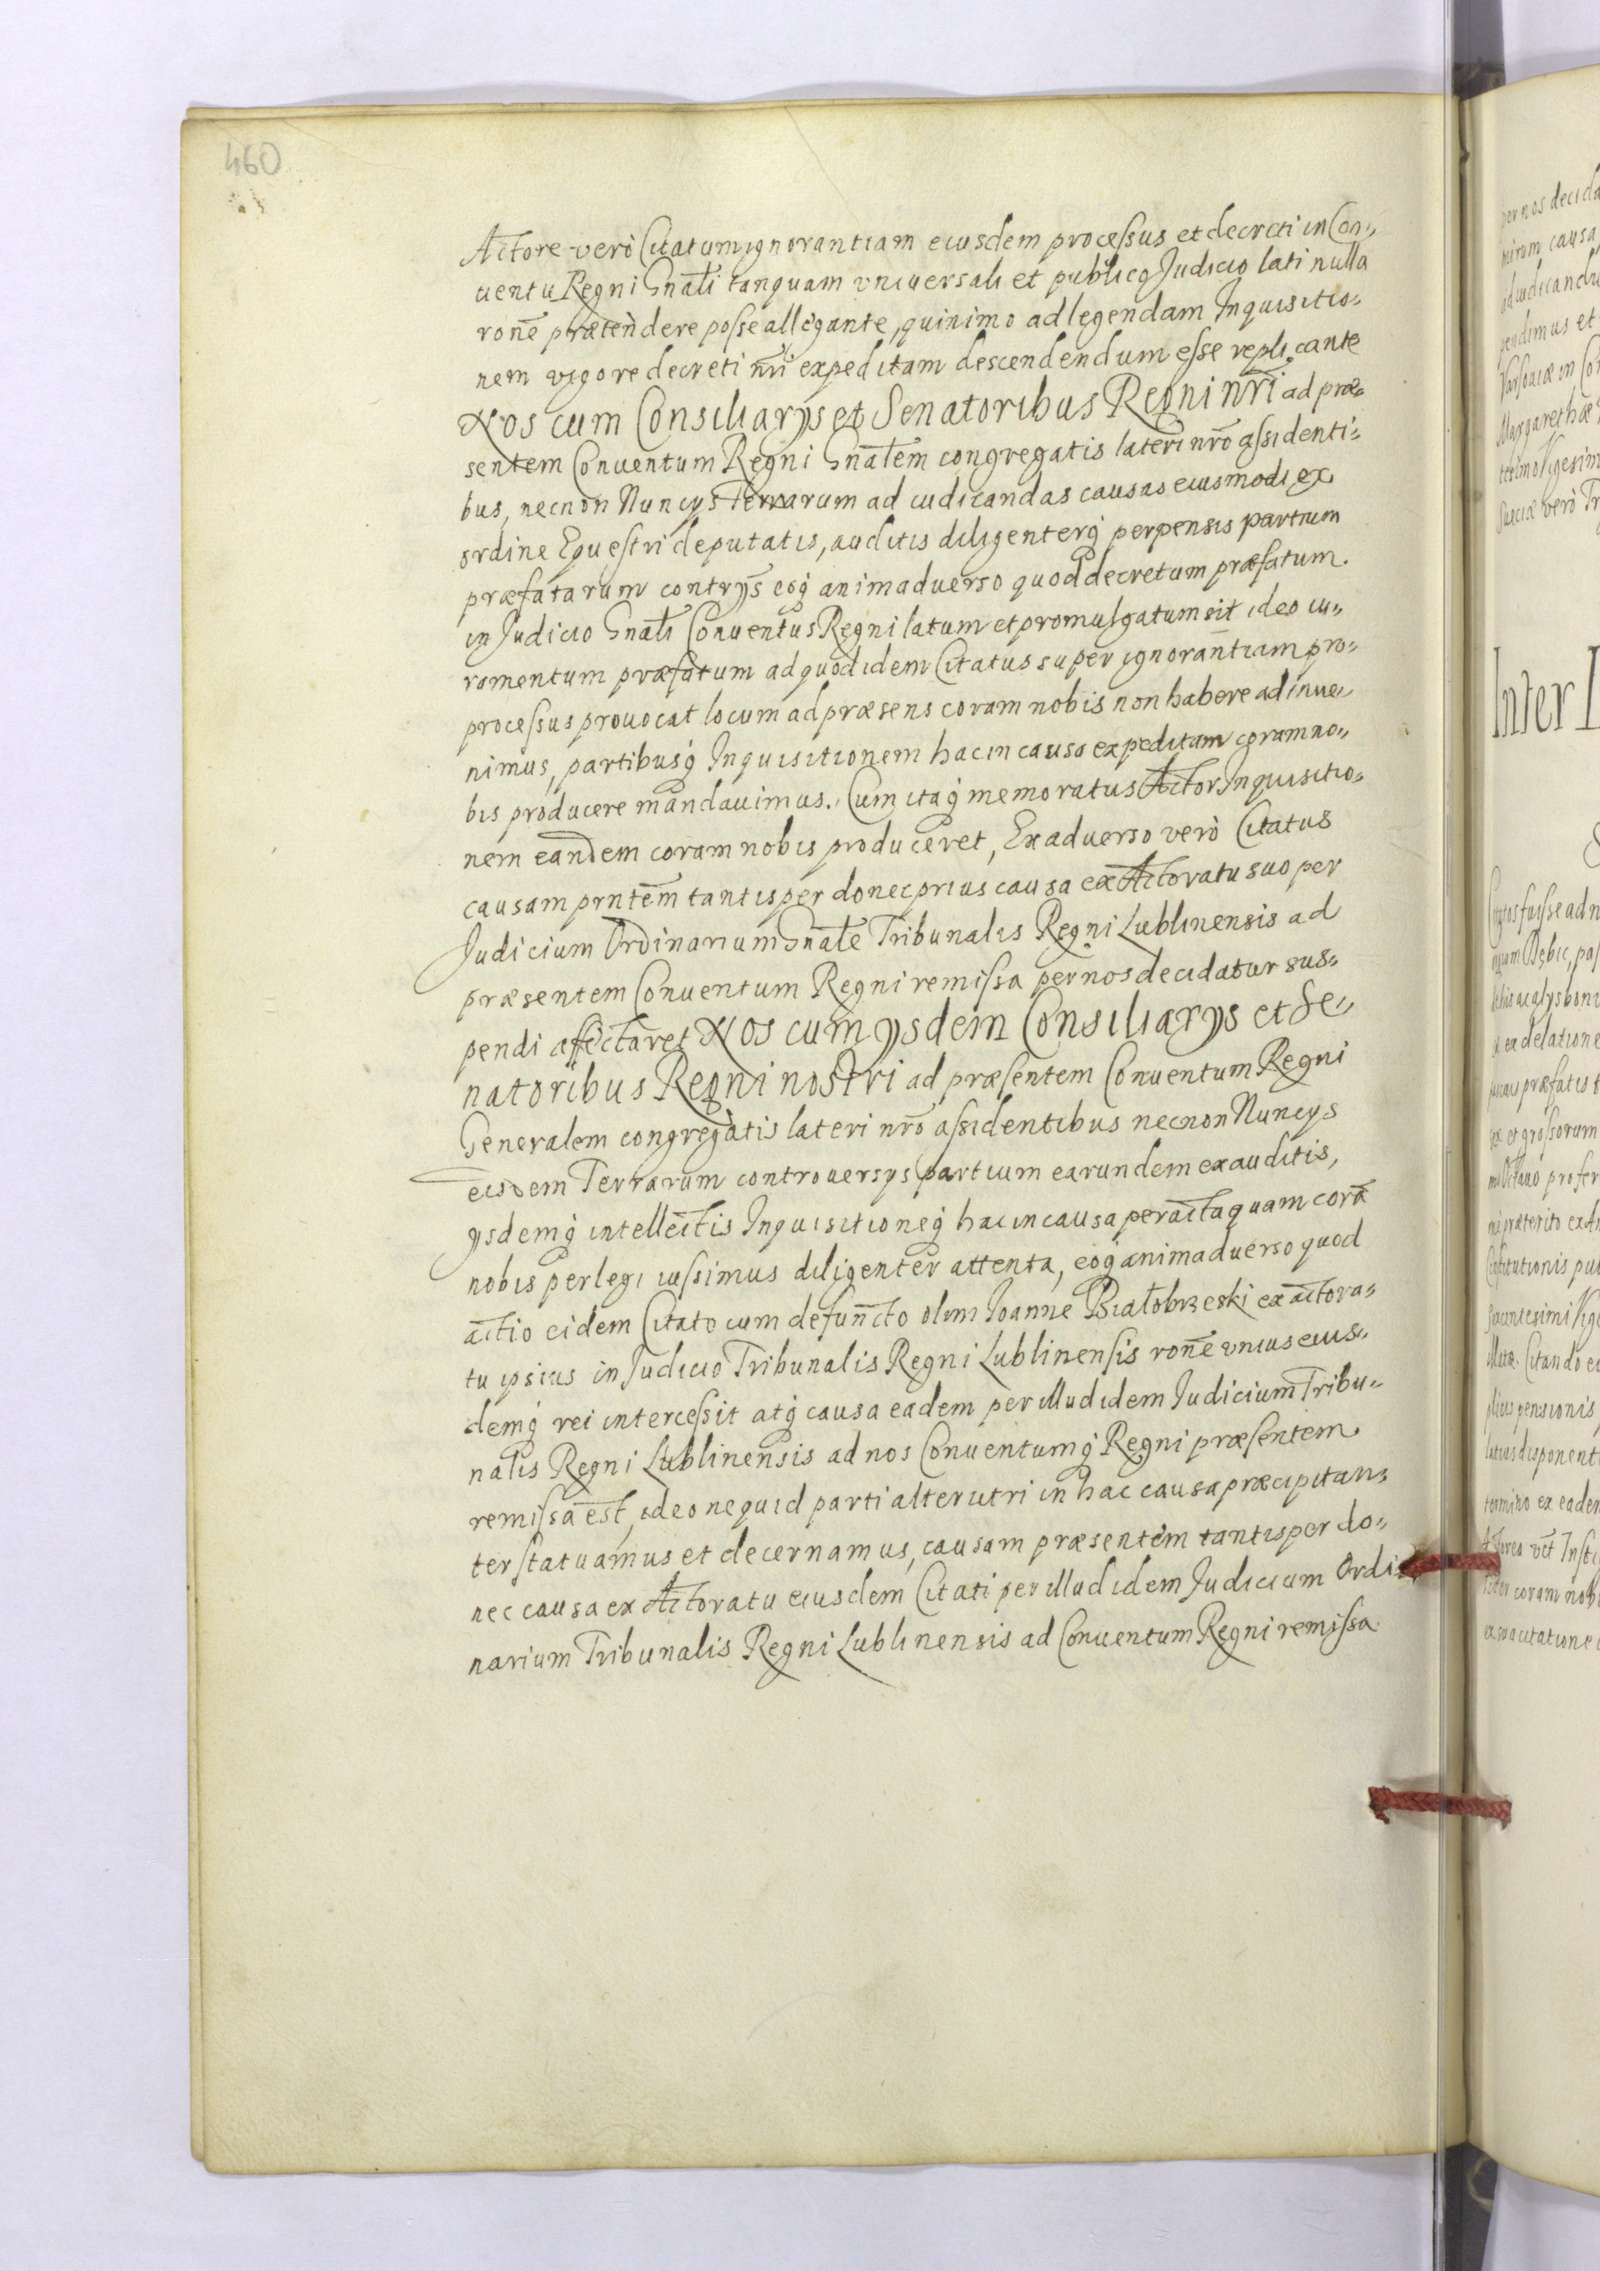 460
Actore verò Citatum ignorantiam eiusdem processus et decreti in Con-
uentu Regni Gnãli tanquam vniuersali et publico Judicio lati nulla
rone prætendere posse allegante, quinimo ad legendam Inquisitio-
nem vigore decreti nri expeditam descendendum esse replicante
Nos cum Consiliarys et Senatoribus Regni nri ad præ-
sentem Conuentum Regni Gnãlem congregatis lateri nro assidenti-
bus, necnon Nuncys Terrarum ad iudicandas causas eiusmodi ex
ordine Equestri deputatis, auditis diligenterq perpensis partium
præfatarum contrys eoq animaduerso quod decretum præfatum
in Judicio Gnãli Conuentus Regni latum et promulgatum sit ideo iu-
ramentum præfatum ad quod idem Citatus super ignorantiam pro-
processus prouocat locum ad præsens coram nobis non habere adinue-
nimus, partibusq Inquisitionem hac in causa expeditam coram no-
bis producere mandauimus. Cum itaq memoratus Actor Inquisitio-
nem eandem coram nobis produceret, Ex aduerso verò Citatus
causam prntem tantisper donec prius causa ex Actoratu suo per
Judicium Ordinarium Gnãle Tribunalis Regni Lublinensis ad
præsentem Conuentum Regni remissa per nos decidatur sus-
pendi affectaret Nos cum ysdem Consiliarys et Se-
natoribus Regni nostri ad præsentem Conuentum Regni
Generalem congregatis lateri nro assidentibus necnon Nuncys
eisdem Terrarum controuersys partium earundem exauditis,
ysdemq intellectis Inquisitioneq hac in causa peracta quam corã
nobis perlegi iussimus diligenter attenta, eoq animaduerso quod
actio eidem Citato cum defuncto olim Joanne Białobrzeski ex actora-
tu ipsius in Judicio Tribunalis Regni Lublinensis rone vnius eius-
demq rei intercessit atq causa eadem per illud idem Judicium Tribu-
nalis Regni Lublinensis ad nos Conuentumq Regni præsentem
remissa est, ideo ne quid parti alterutri in hac causa præcipitan-
ter statuamus et decernamus, causam præsentem tantisper do-
nec causa ex Actoratu eiusdem Citati per illud idem Judicium Ordi-
narium Tribunalis Regni Lublinensis ad Conuentum Regni remissa
per nos decida
causa
Inter